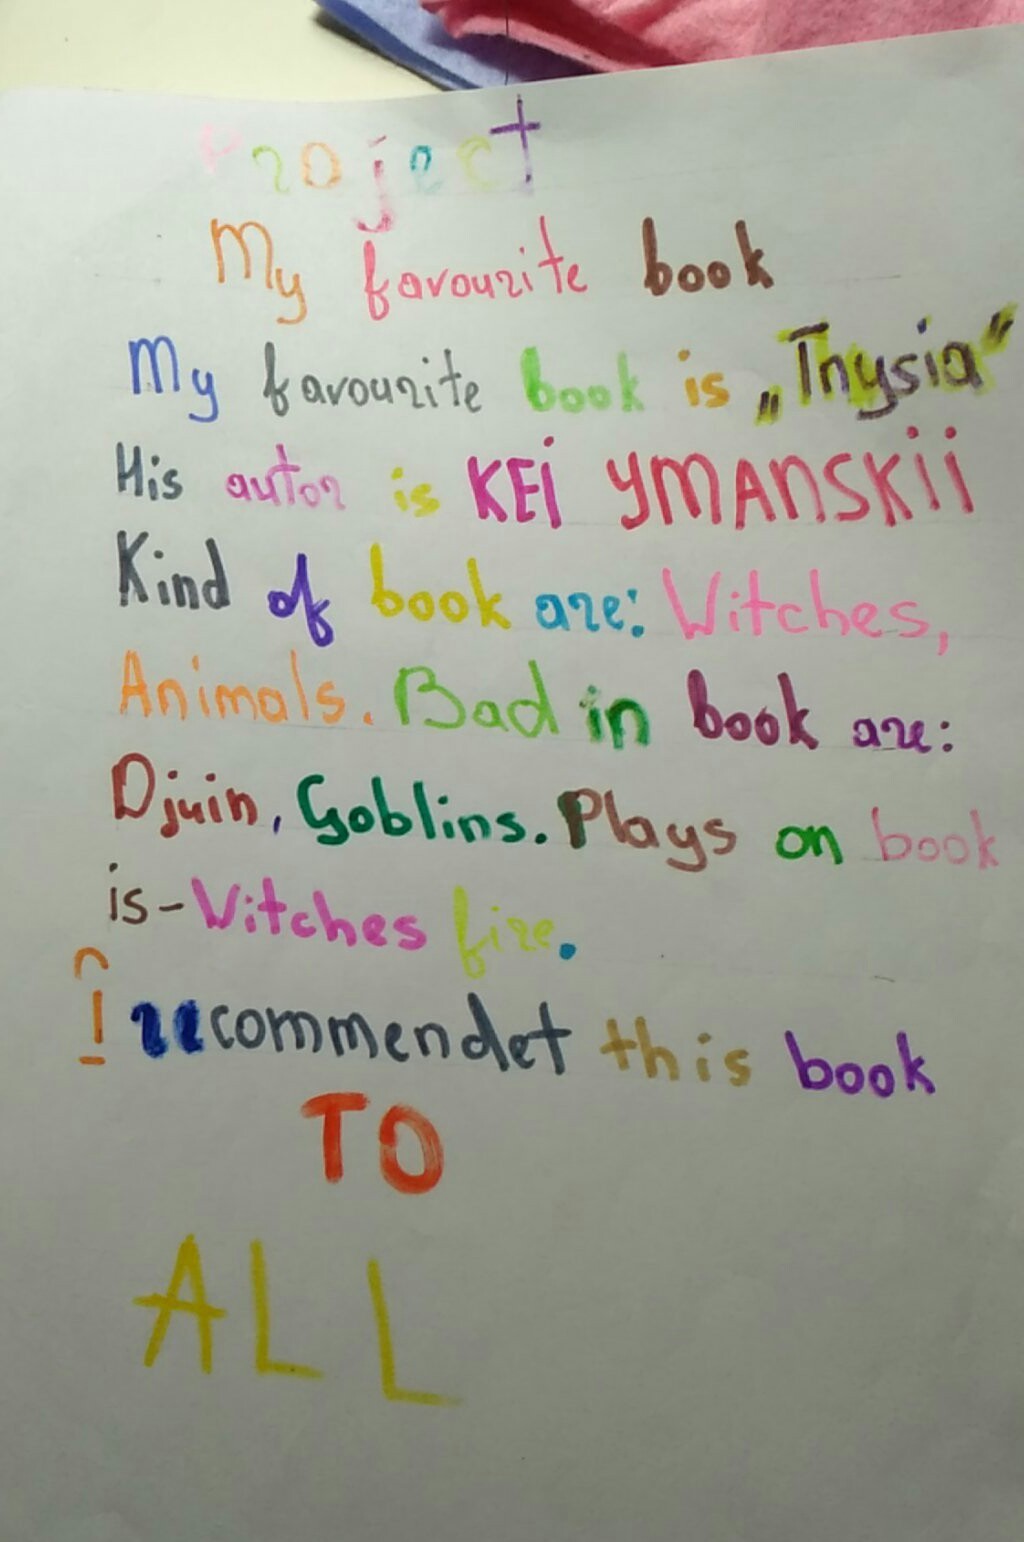 Project
My favourite book
My favourite book is „Thysia"
His autor is KEi YMANSKii
Kind of book are: Witches,
Animals. Bad in book are:
Djuin, Goblins. Plays on book
is-Witches fire.
I recommendet this book
TO
ALL